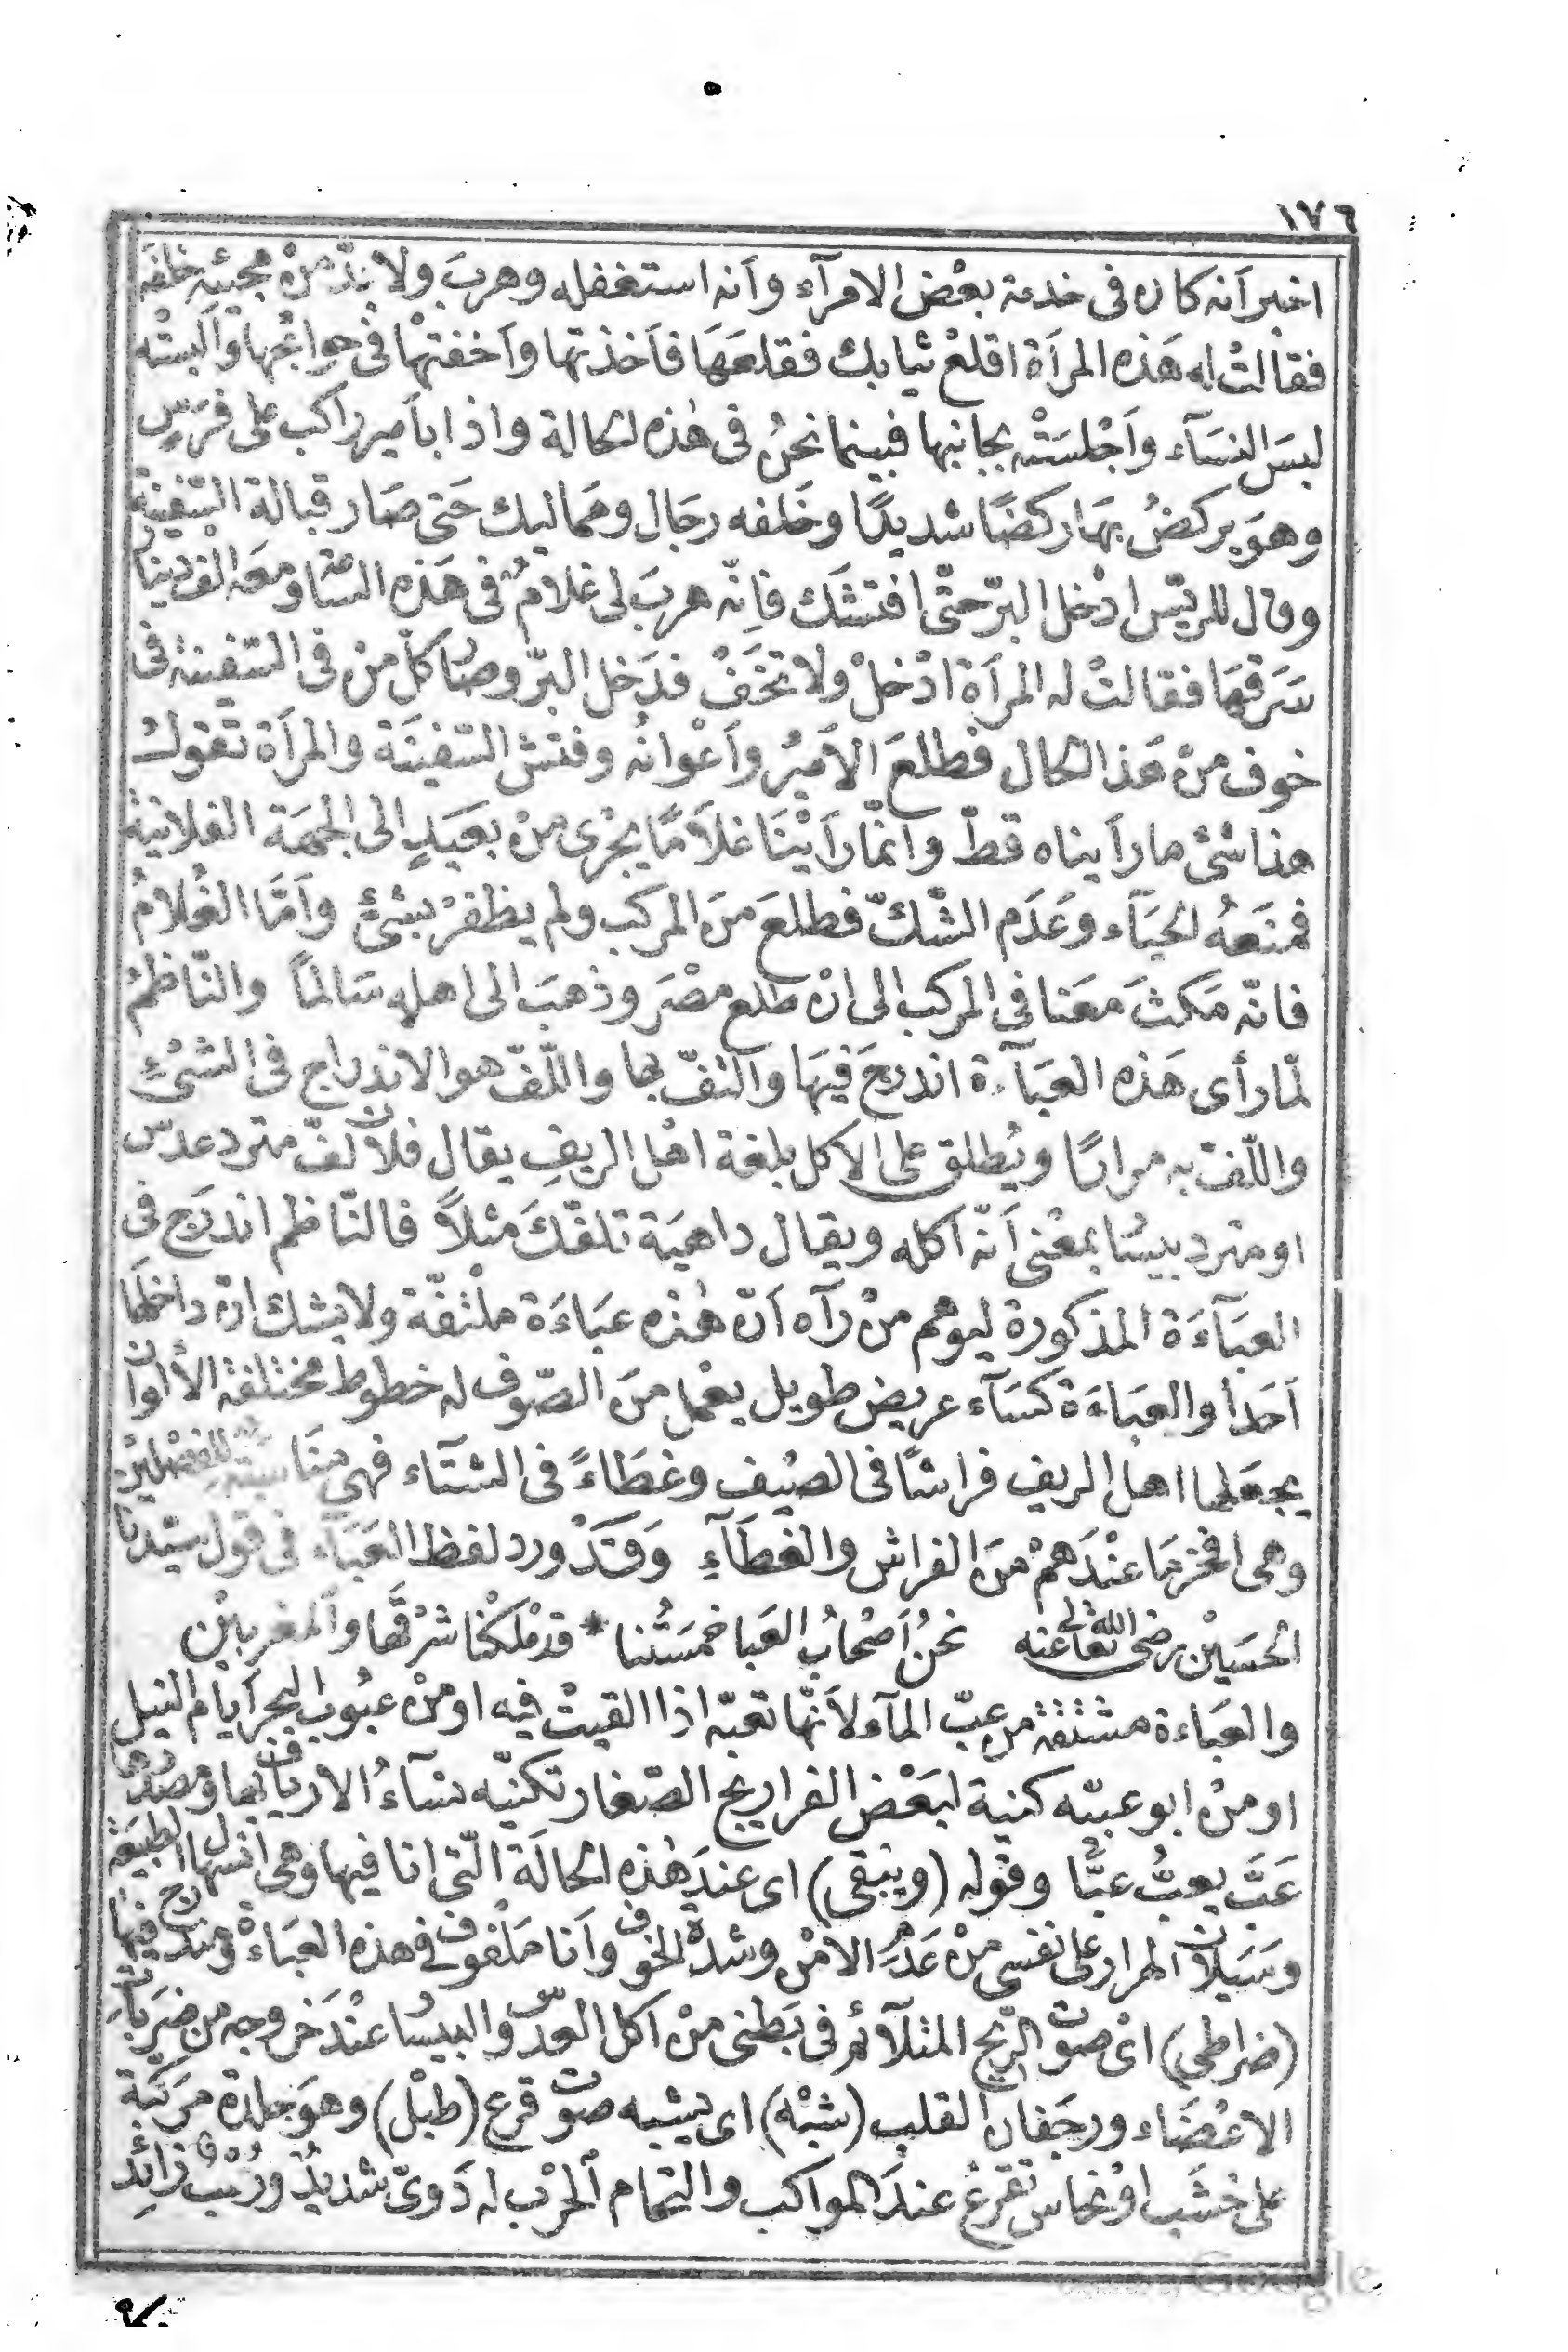 ١٧٦
اخبر أنه كان فى خدمة بعْض الامرآء وأنه استغفله وهربَ ولا بدّ منْ مجيئه خلفه
فقالتْ له هَذه المرأة اقلعْ ثيابك فقلعَهَا فأخذتها وأخفتهْا فى حوائجها وألبستْه
لبسَ النسَآء وأجْلسَتْه بجانبها فبينما نحنُ فى هٰذه الحالة واذا بأمير راكب على فرَسٍ
وهوَ يركضُ بهَا ركضًا شديدًا وخَلفه رجَال وممَاليك حَتى صَار قبالة السّفينة
وقال للريّس ادْخل البرّ حتّى افتشَك فاِنّه هربَ لى غلامٌ فى هَذه السّاعة ومعَه الف دينار
سَرَقهَا فقالتْ له المرأة ادْخلْ ولا تخَفْ فدَخل البرّ وصَار كلّ منْ فى السّفينة فى
خوف منْ هَذا الحال فطلعَ الأميُر وأعْوانُه وفتش السّفينَة والمرأة تقولُ
هذا شئ ما رأيناه قطّ وانّما رَأيْنَا غلاَمًا يجْرى منْ بعَيدٍ الى الجهَة الفلانيّة
فمنَعهُ الحيَآء وعَدَم الشّكّ فطلعَ منَ المركب ولم يظفرْ بشئٍ وأمَّا الغُلامُ
فانّه مَكثَ معَنا فى المركب الى انْ طلع مصْرَ وذهبَ الى اهله سَالماً والنّاظمُ
لمّا رأى هَذه العبَآءة اندرجَ فيَها والتفّ بها واللّفّ هو الاندراج فى الشئِ
واللّفّ به مرارًا ويُطلق على الأكل بلغة اهْل الريفِ يقال فلان لفّ مترد عدسّ
او مترد بيسَار بمعْنى أنّه أكله ويقال داهيَة تلفّكَ مثلاً فالنّاظم اندرَج فى
العبَآءَة المذكورة ليوهم منْ رآه أنّ هٰذه عبَاءَة ملْتفّة ولا يشك انّ داخلهَا
أحَداً والعبَاءَة كسَآء عريض طويل يعْمل منَ الصّوف له خطوط مختلفة الألوان
يجعَلها اهل الريف فراشًا فى الصيْف وغطَاءً فى الشتَآء فهي منَاسبَة للفصْلينْ
وهى افخر مَا عنْدَهمْ منَ الفراش والغطَآءِ وَقَدْ ورد لفظ العَبَآء فى قول سيّدنا
الحُسَينْ رضى الله تعالى عنه نحنُ أصْحَابُ العبَا خمسَتُنا * قدْ ملَكْنا شرْقَهَا وَالمغربيْن
والعبَاءة مشتقة من عبّ المآء لأنّها تعبّه اذا القيتْ فيه او منْ عبُوب البحر أيام النيل
او منْ ابو عبيّه كنية لبَعْض الفراريج الصّغار تكنيّه نسَآءُ الارياف بها ومصْدرُها
عَبَّ يعبُّ عبًّا وقوله (ويبقى) اى عندَ هٰذه الحالَة الّتى انا فيها وهى انسهال الطبيعَة
وسَيَلان الهرار على نفسى منْ عَدَم الامْن وشدّة الخوْف وأنا ملْفوف فى هذه العبَاءَة ومندرج فيها
(ضراطى) اىْ صوت الرّيح المتلآئم فى بَطنى منْ اكل العدّس والبيسُار عنْدَ خروجه من ضرَبَات
الاعْضَاء ورجَفان القلب (شبْه) اى يشبه صوْت قرع (طبْل) وهوَ جلدة مرَكّبَة
على خشَب اوْ نحاس تقرعُ عندَ المواكب والتحام الحرْب له دَوىّ شديدٌ ورُعْب زائد